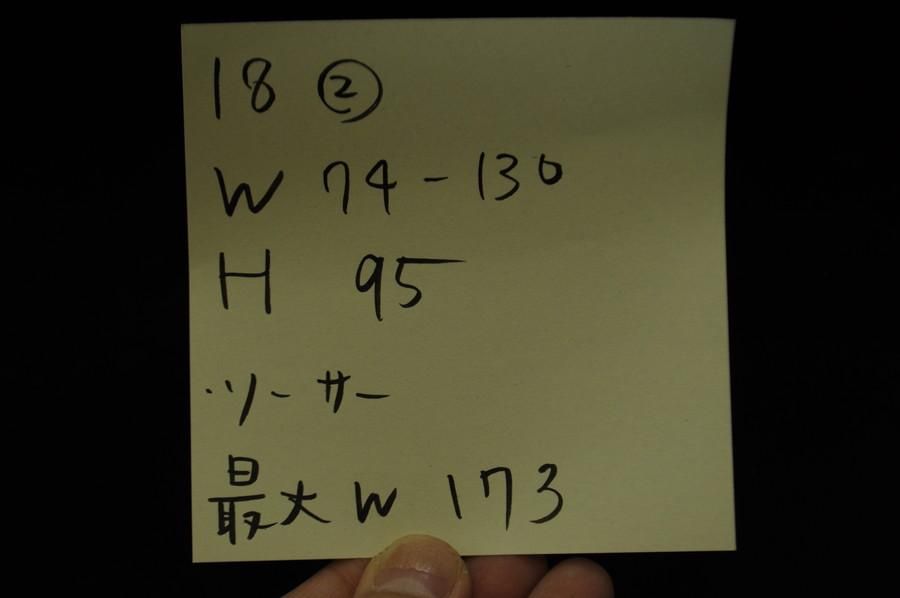 18 ②
W 74-130
H 95
・ソーサー
最大 W 173